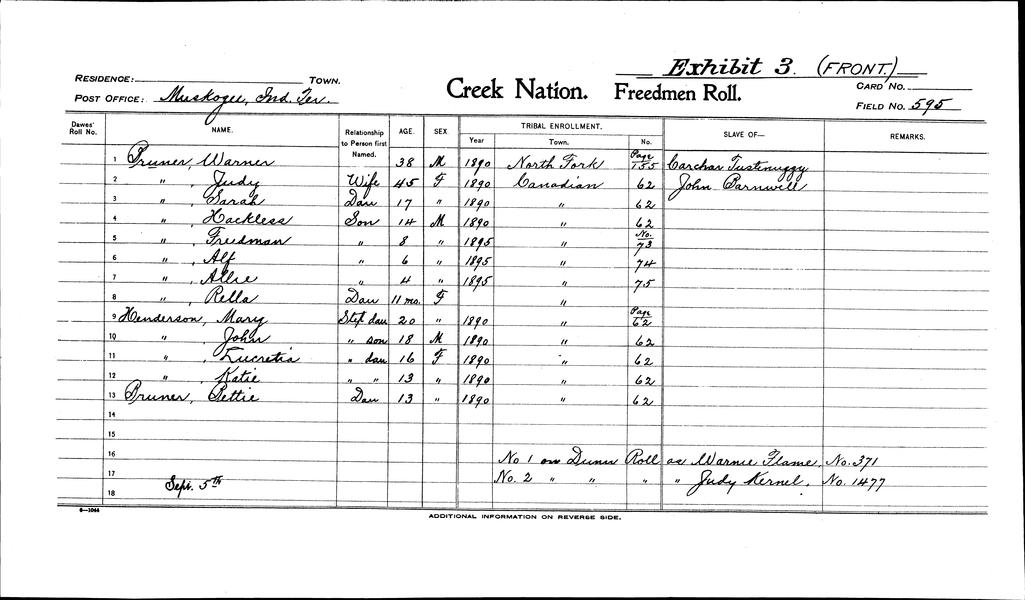 Exhibit 3. (FRONT.)
RESIDENCE: TOWN.
Creek Nation. Freedmen Roll.
CARD NO.
POST OFFICE: Muskogee, Ind. Ter.
FIELD NO. 595
Dawes' Roll No. NAME. Relationship to Person first Named. AGE. SEX TRIBAL ENROLLMENT. Year Town. No. SLAVE OF— REMARKS.
1 Pruner, Warner 38 M 1890 North Fork Page 155 Carchar Tustinuggy
2 " , Judy Wife 45 F 1890 Canadian 62 John Barnwell
3 " , Sarah Dau 17 " 1890 " 62
4 " , Hackless Son 14 M 1890 " 62
5 " , Freedman " 8 " 1895 " No. 73
6 " , Alf " 6 " 1895 " 74
7 " , Allse " 4 " 1895 " 75
8 " , Rella Dau 11 mo. F "
9 Henderson, Mary Step dau 20 " 1890 " Page 62
10 " , John " son 18 M 1890 " 62
11 " , Lucretia " dau 16 F 1890 " 62
12 " , Katie " " 13 " 1890 " 62
13 Pruner, Bettie Dau 13 " 1890 " 62
14
15
16 No 1 on Dunn Roll as Warnie Flame, No. 371
17 No. 2 " " " " Judy Kernel, No. 1477
Sept. 5th
18
6—1044
ADDITIONAL INFORMATION ON REVERSE SIDE.